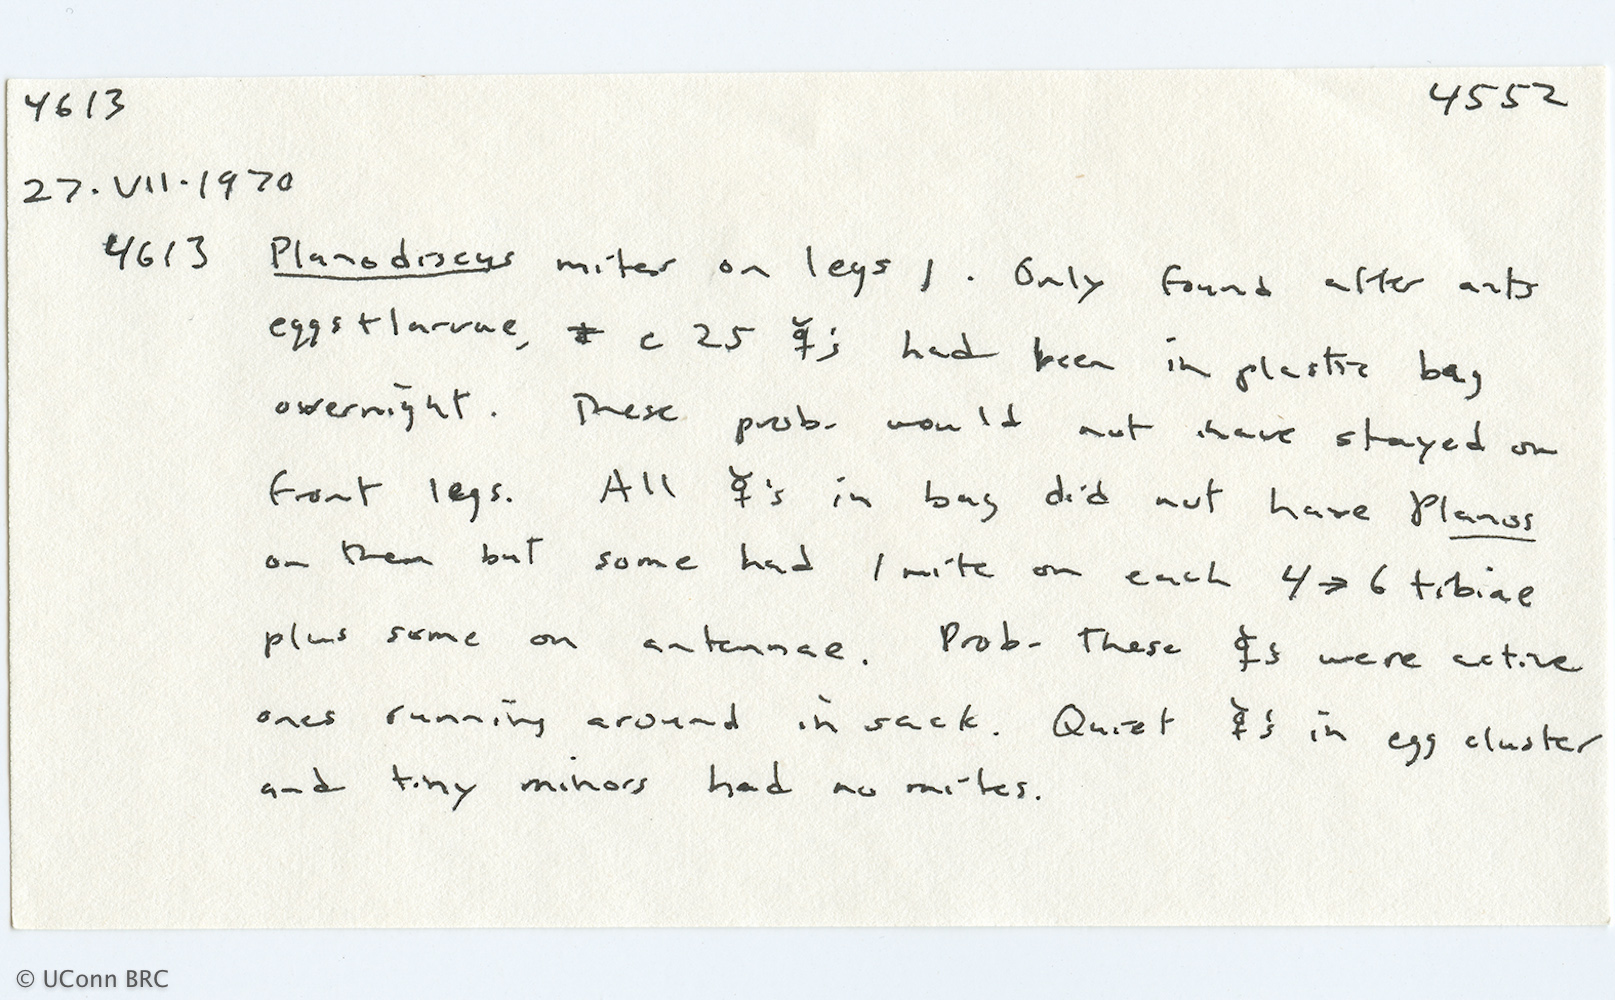 4613 4552
27.VII.1970
4613 Planodiscus mites on legs, . Only found after ants
eggs + larvae, c 25 ☿'s had been in plastic bag
overnight. These prob. would not have stayed on
front legs. All ☿'s in bag did not have Planos
on them but some had 1 mite on each 4→6 tibiae
plus some on antennae. Prob. these ☿s were active
ones running around in sack. Quiet ☿s in egg cluster
and tiny minors had no mites.
© UConn BRC